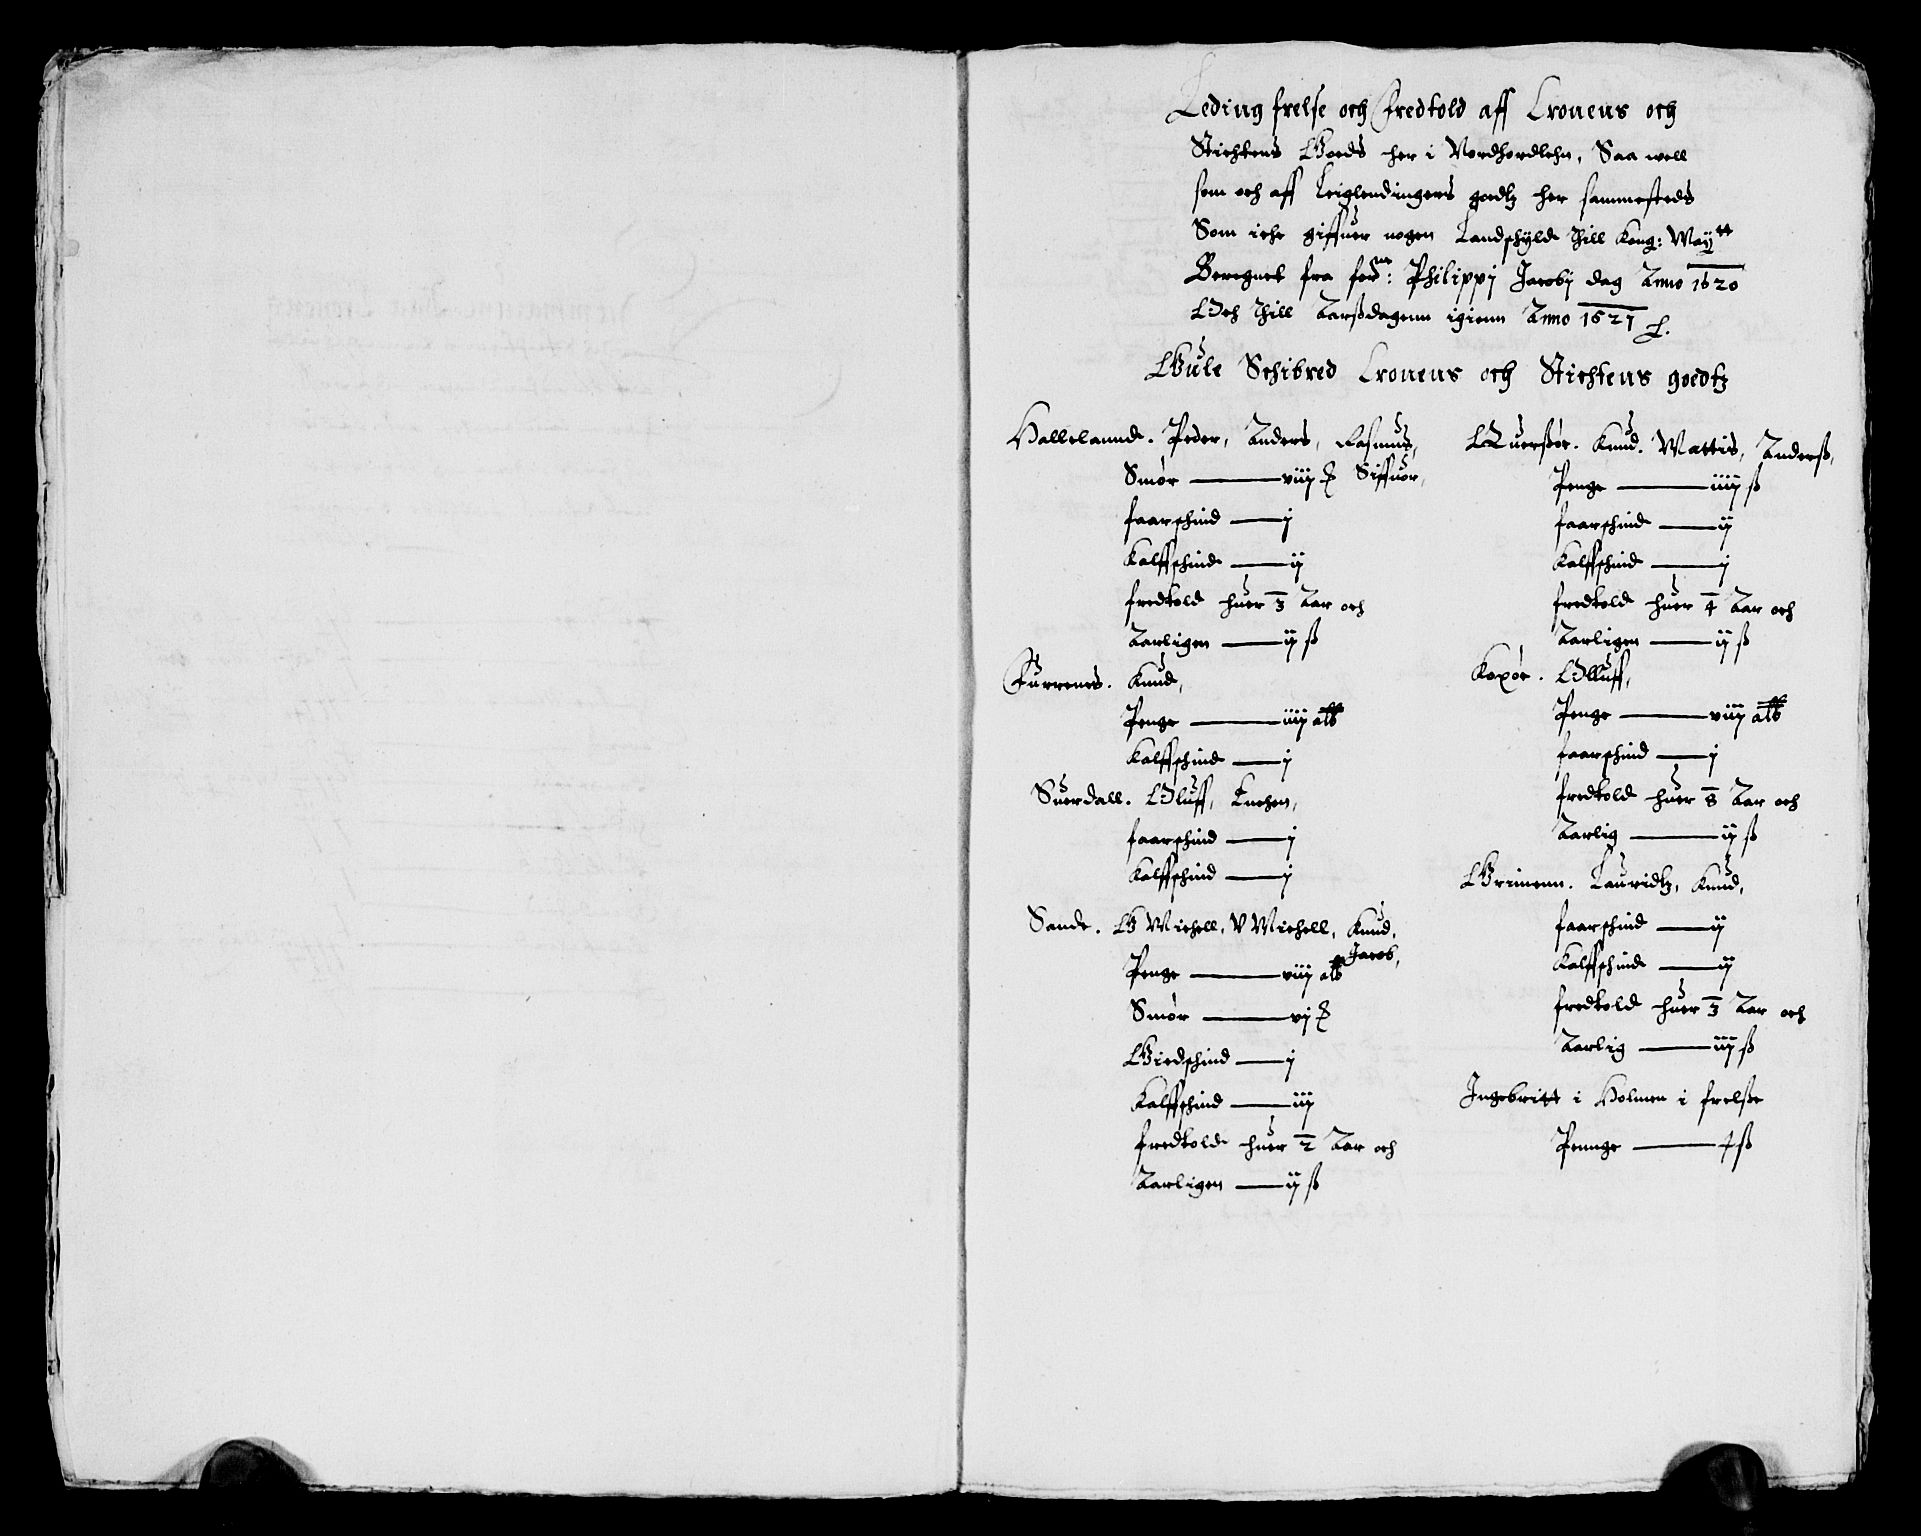 Leding frelse och Fredtold aff Cronens och
Stichtens Goeds her i Nordhordlehn, Saa well
som och aff Leiglendingers goedtz her sammesteds
Som iche giffuer nogen Landschyld thill Kong: May tt
Beregnet fra for ne: Philippi Jacobj dag Anno 1620
Och thill Aarßdagenn igienn Anno 1621
Gule Schibred Cronens och Stichtens goedtz
Hallelannd. Peder, Anders, Rasmus,
Smør — viij Siffuer,
faarschind — j
Kalffschind — ij
fredtold huer 3 Aar och
Aarligen — ij ß
Furrenes. Knud,
Penge — iiij alb
Kalffschind — j
Suerdall. Oluff, Enchen,
faarschind — j
Kalffschind — j
Sande. G Michell, V Michell, Knud,
Jacob,
Penge — viij alb
Smør — vj
Giedschind — j
Kalffschind — iij
fredtold huer 2 Aar och
Aarligen — ij ß
Querßøe. Knud. Mattis, Anderß,
Penge — iiij ß
faarschind — ij
Kalffschind — j
fredtold huer 4 Aar och
Aarligen — ij ß
Kaxøe. Olluff,
Penge — viij alb
faarschind — j
fredtold huer 8 Aar och
Aarlig — ij ß
Grimenn. Lauridtz, Knud,
faarschind — ij
Kalffschind — ij
fredtold huer 3 Aar och
Aarlig — iij ß
Ingebritt i Holmen i frelße
Pennge — ß